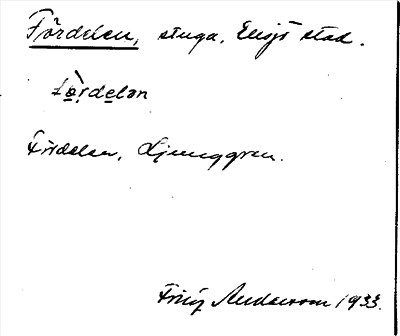 Fördelen, stuga, Eksjö stad.
fö̀rdelən
Fördelen, Ljunggren.
Frity Anderson 1933.